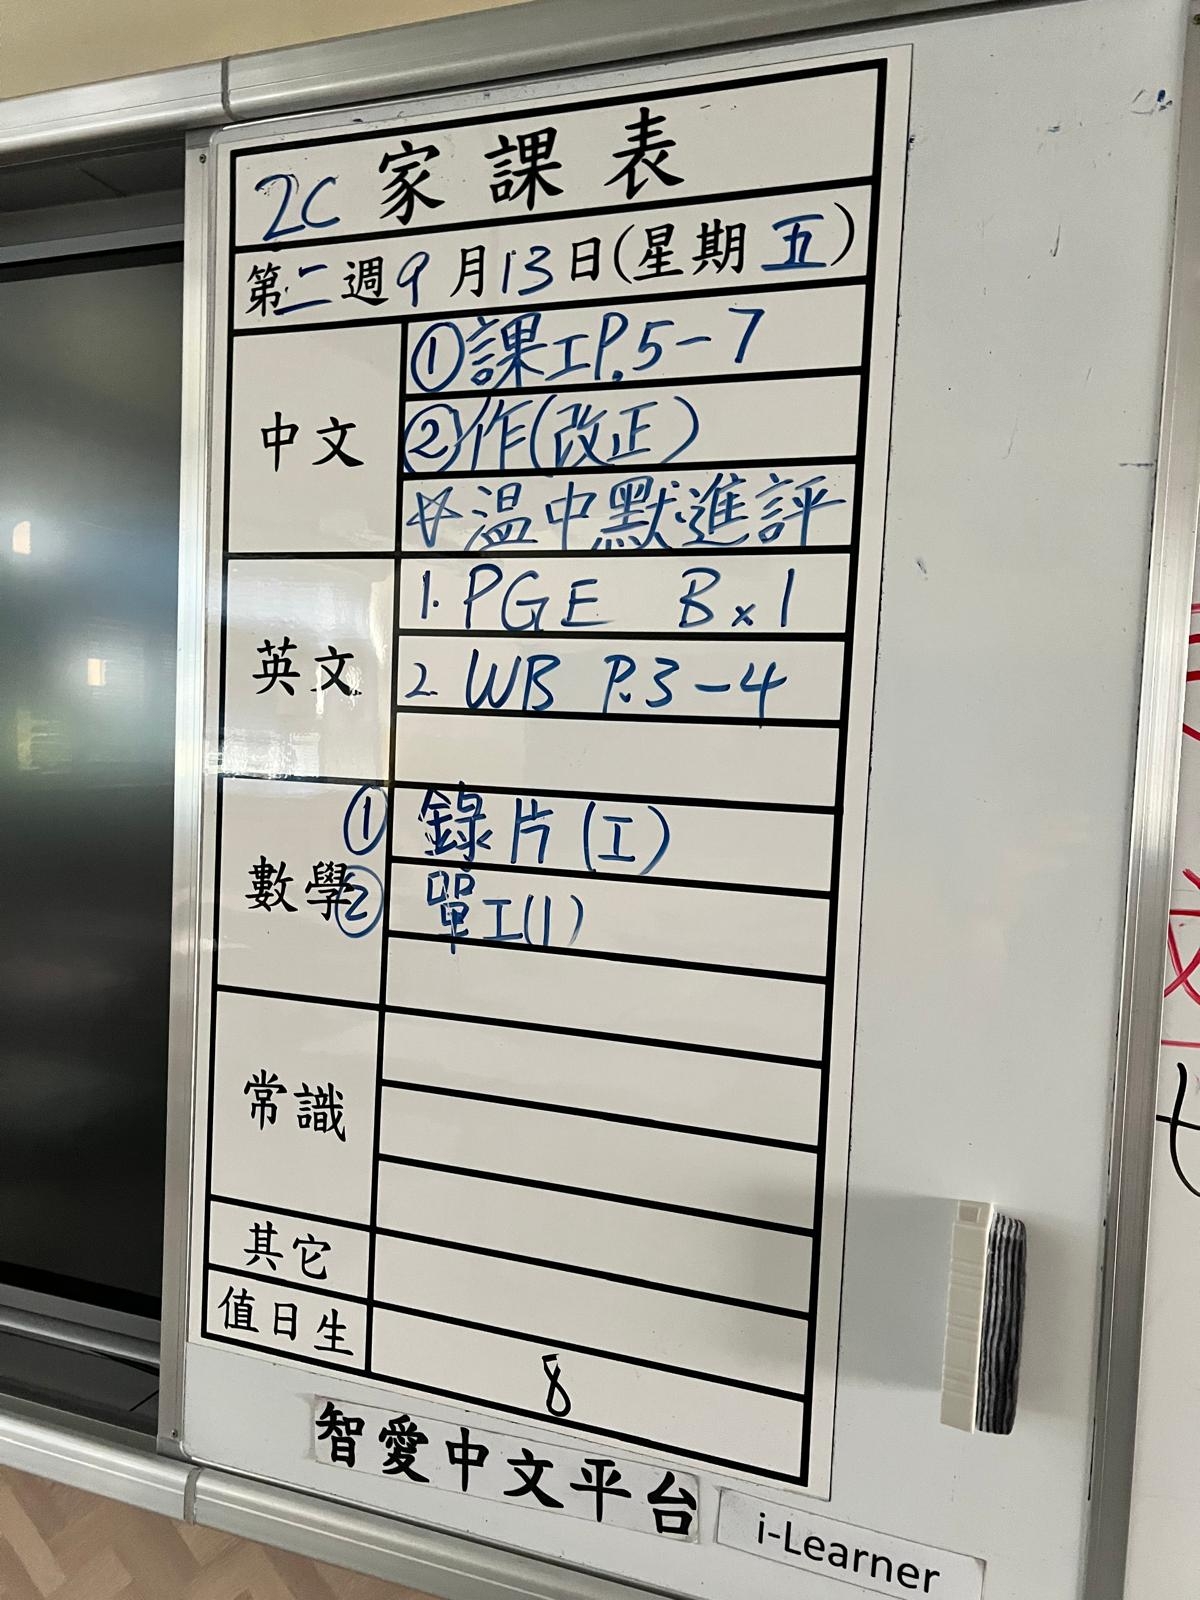 2C 家課表
第二週9月13日(星期五)
中文
①課工P.5-7
②作(改正)
☆温中默進評
英文
1. PGE B×1
2. WB P.3-4
數學
① 錄片(工)
② 單工(1)
常識
其它
值日生
8
智愛中文平台
i-Learner